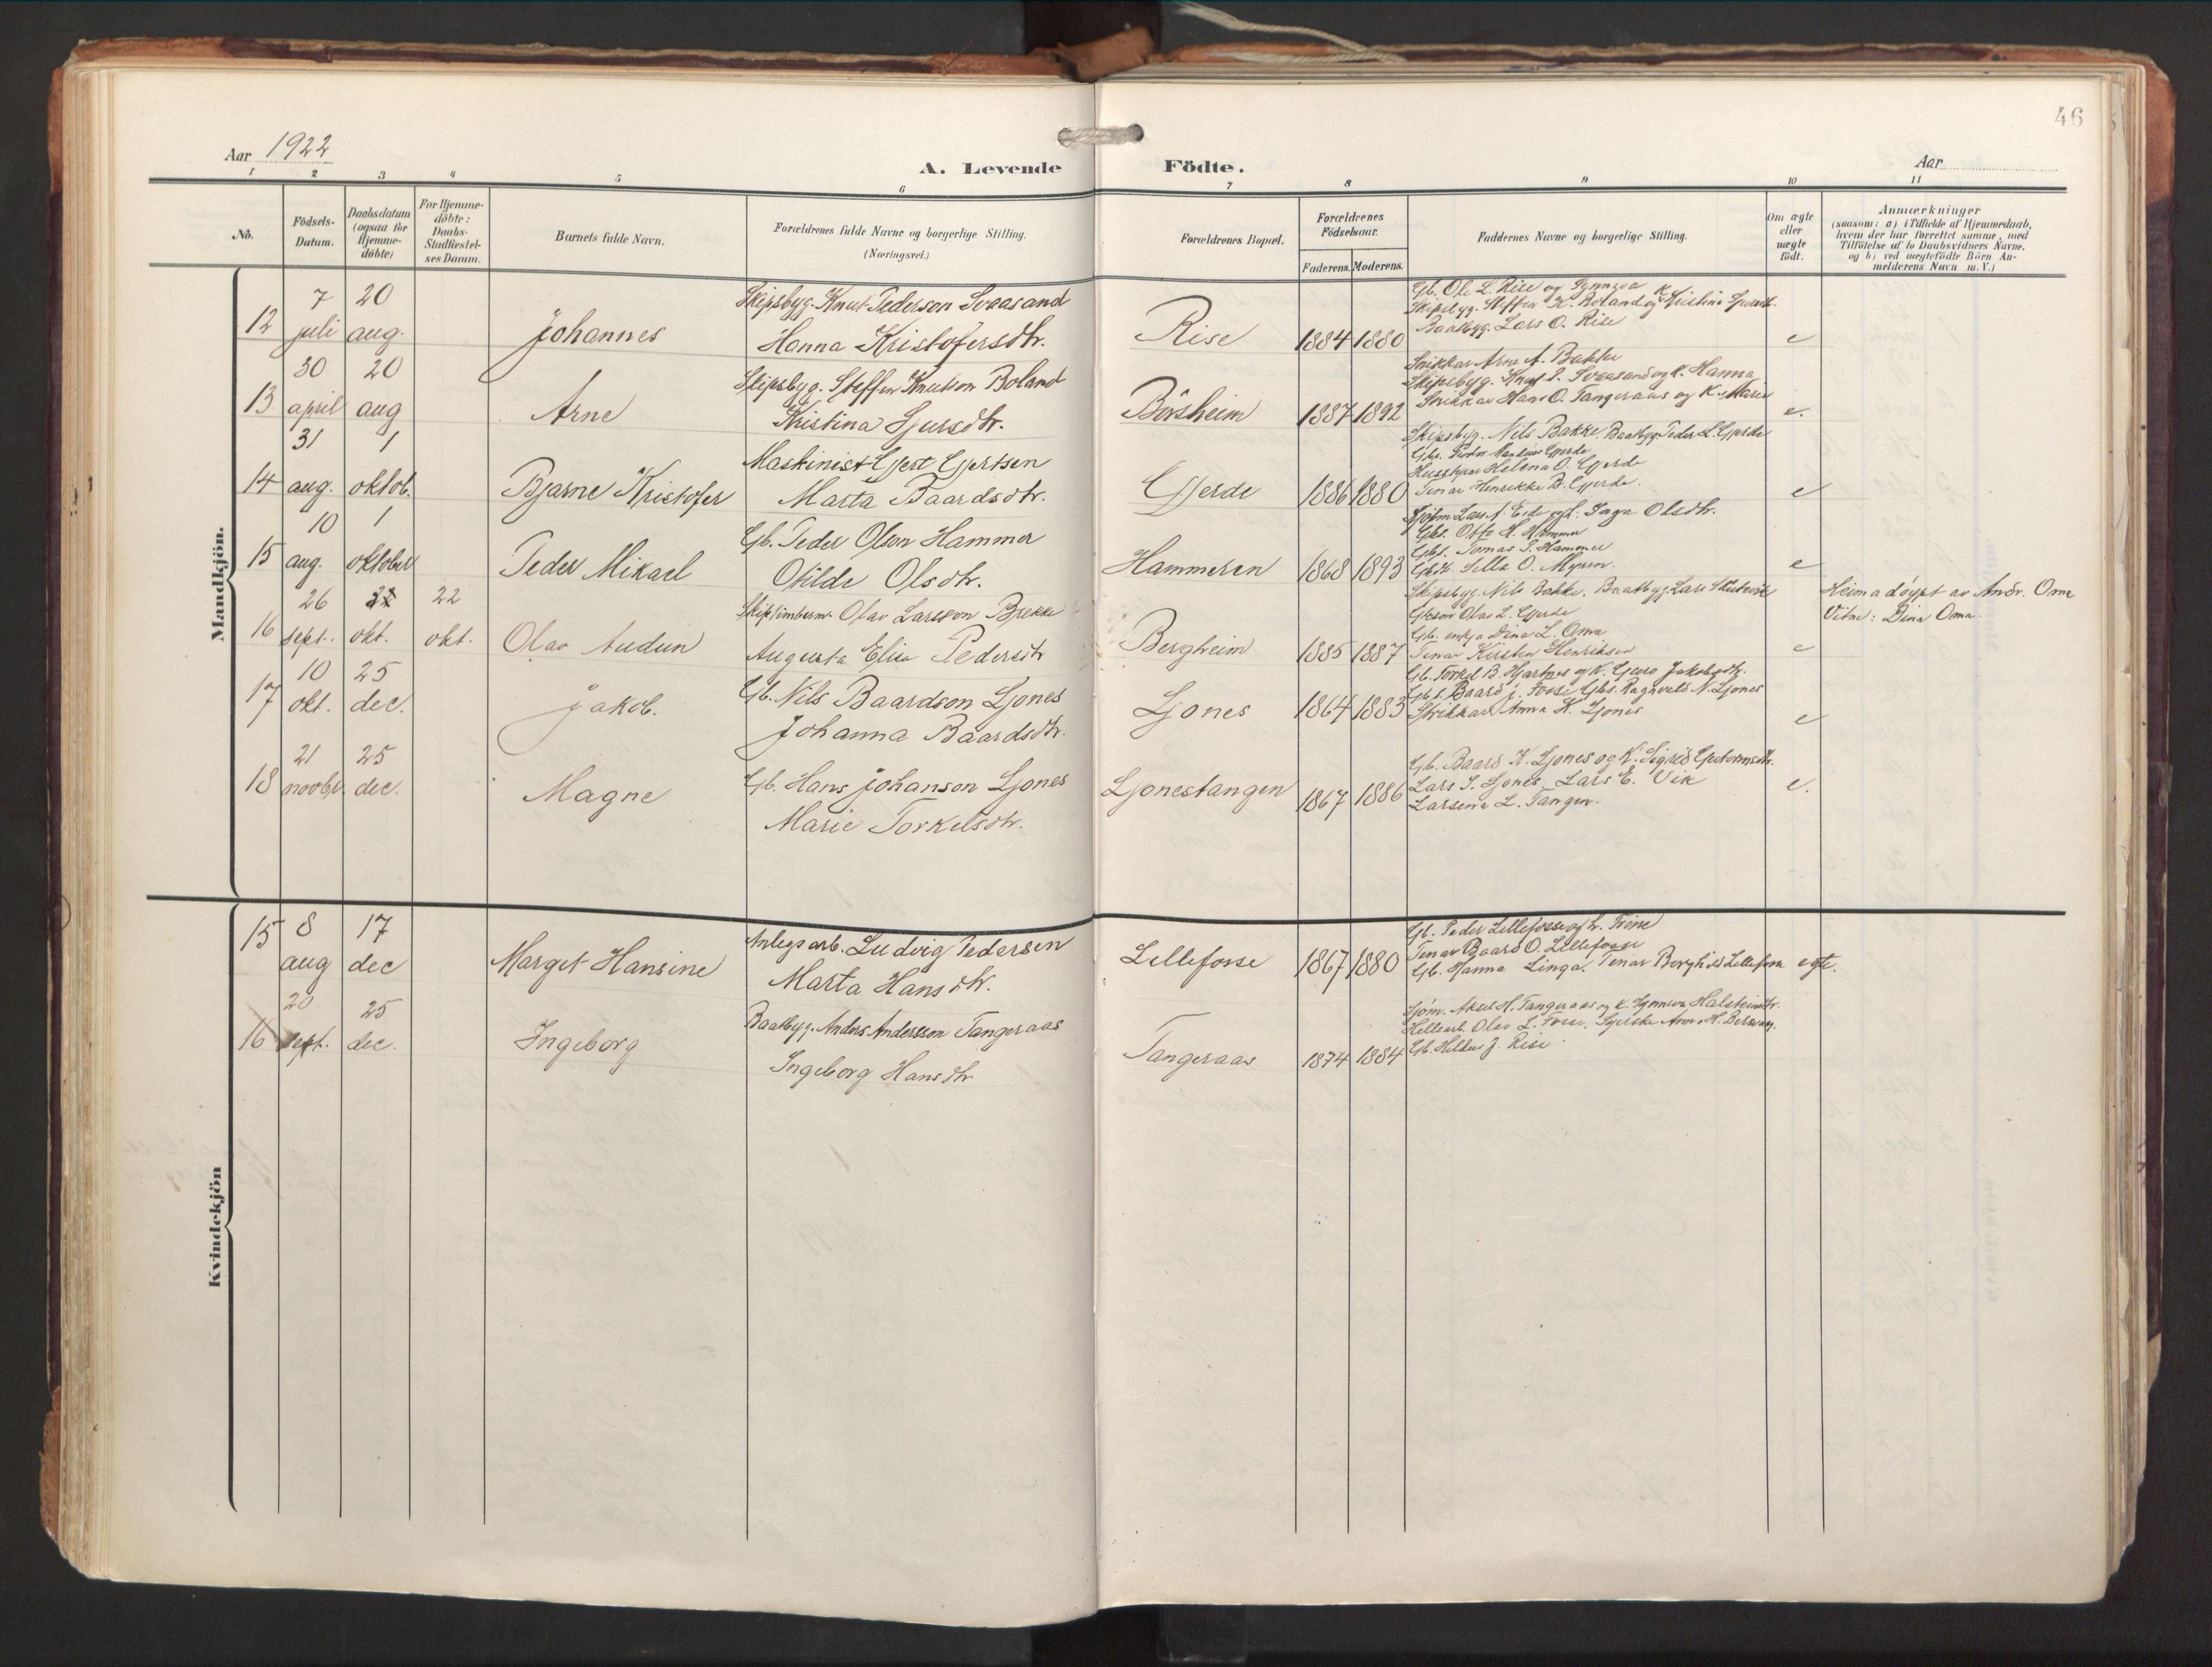 46
Aar 1922
A. Levende Födte.
Aar
1 2 3 4 5 6 7 8 9 10 11
No.
Födsels-Datum.
Daabsdatum (ogsaa for Hjemme-döbte)
For Hjemme-döbte: Daabs-Stadfæstel-ses Datum.
Barnets fulde Navn.
Forældrenes fulde Navne og borgerlige Stilling. (Næringsvei.)
Forældrenes Bopæl.
Forældrenes Födselsaar.
Faderens. Moderens.
Faddernes Navne og borgerlige Stilling.
Om ægte eller uægte födt.
Anmærkninger
(saasom: a) i Tilfælde af Hjemmedaab,
hvem der har forrettet samme, med
Tilföielse af to Daabsvidners Navne,
og b) ved uægtefödte Börn An-
melderens Navn m. V.)
Mandkjön.
12 7 juli 20 aug. Johannes
Skipsbyg. Knut Pederson Svaasand
Hanna Kristofersdtr.
Rise 1884 1880
Gb. Ole L. Rise og Synneva
Skipsbyg. Steffen K. Boland og K. Kristina Sjursdt.
Baatbyg. Lars O. Rise
e
13 30 april 20 aug Arne
Skipsbyg. Steffen Knutson Boland
Kristina Sjursdtr.
Börsheim 1887 1892
Snikkar Arne A. Bakke
Skipsbyg. Knut P. Svaasand og k. Hanna
Snikkar Hans O. Tangeraas og K. Marie
e.
14 31 aug. 1 oktob. Bjarne Kristofer
Maskinist Gjert Gjertsen
Marta Baardsdtr.
Gjerde 1886 1880
Skipsbyg. Nils Bakke. Baatbyg. Peder L. Gjerde
Gjerde
Helena O. Gjerde
Tenar Henrikke B. Gjerde.
e
15 10 aug. 1 oktober Peder Mikael
Gb. Peder Olson Hammer
Otilde Olsdtr.
Hammeren 1868 1893
Lars A. Eide og k. Inga Olsdtr.
Gbs. Otto H. Hammer
Gbs. Tomas P. Hammer
Sella O. Myren.
e
16 26 sept. 22 okt. 22 okt. Olav Audun
Skipstimberm. Olav Larsson Brekke
Augusta Elise Pedersdtr
Bergheim 1885 1887
Skipsbyg. Nils Bakke. Baatbyg. Lars
Olav L. Gjerde
Gb. enkja Dina L. Oma
Tenar Kirsten Henriksen
e
Heimadøypt av Andr. Oma
Vitne: Dina Oma.
17 10 okt. 25 dec. Jakob.
Gb. Nils Baardson Ljones
Johanna Baardsdtr.
Ljones 1864 1883
Gb. Torkel B. Hjartnes og K. Guro Jakobsdtr.
Gbs. Baard J. Fosse Gbs. Ragnvald N. Ljones
Strikkar Anna K. Ljones
e
18 21 novbr. 25 dec. Magne
Gb. Hans Johanson Ljones
Marie Torkelsdtr.
Ljonestangen 1867 1886
Gb. Baard K. Ljones og K. Sigrid
Lars S. Ljones, Lars E. Vik
Larsena L. Tangen.
e.
Kvindekjön
15 8 aug 17 dec Margit Hansine
Anlegsarb. Ludvig Pedersen
Marta Hansdtr.
Lillefosse 1867 1880
Gb. Peder Lillefosse og k. Trine
Tenar Baard O. Lillefosse
Gb. Hanna Linga. Tenar Borghild Lillefosse
egte.
16 20 sept. 25 dec. Ingeborg
Baatbyg. Anders Andersson Tangeraas
Ingeborg Hansdtr
Tangeraas 1874 1884
Sjøm. Aksel H. Tangeraas og K. Synneva Halsteinsdtr.
Hellearb. Olav L. Fosse. Syerske Anna H.
Gb. J. Rise